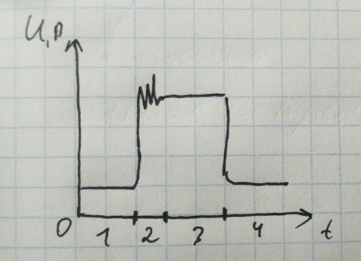 U,P
0 1 2 3 4 t